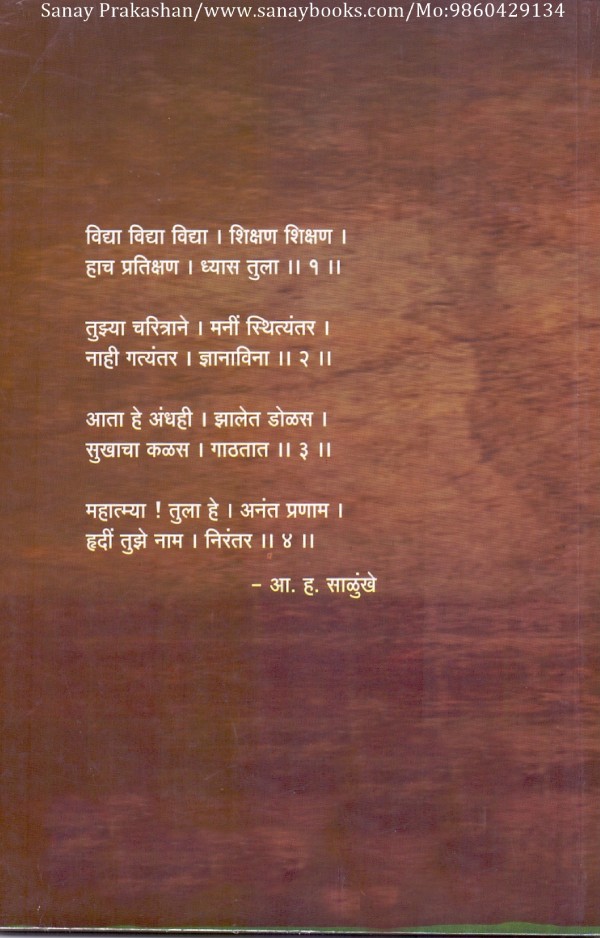 Sanay Prakashan/www.sanaybooks.com/Mo:9860429134
विद्या विद्या विद्या । शिक्षण शिक्षण ।
हाच प्रतिक्षण । ध्यास तुला ।। १ ।।
तुझ्या चरित्राने । मनीं स्थित्यंतर ।
नाही गत्यंतर । ज्ञानाविना ।। २ ।।
आता हे अंधही । झालेत डोळस ।
सुखाचा कळस । गाठतात ।। ३ ।।
महात्म्या ! तुला हे । अनंत प्रणाम ।
हृदीं तुझे नाम । निरंतर ।। ४ ।।
- आ. ह. साळुंखे